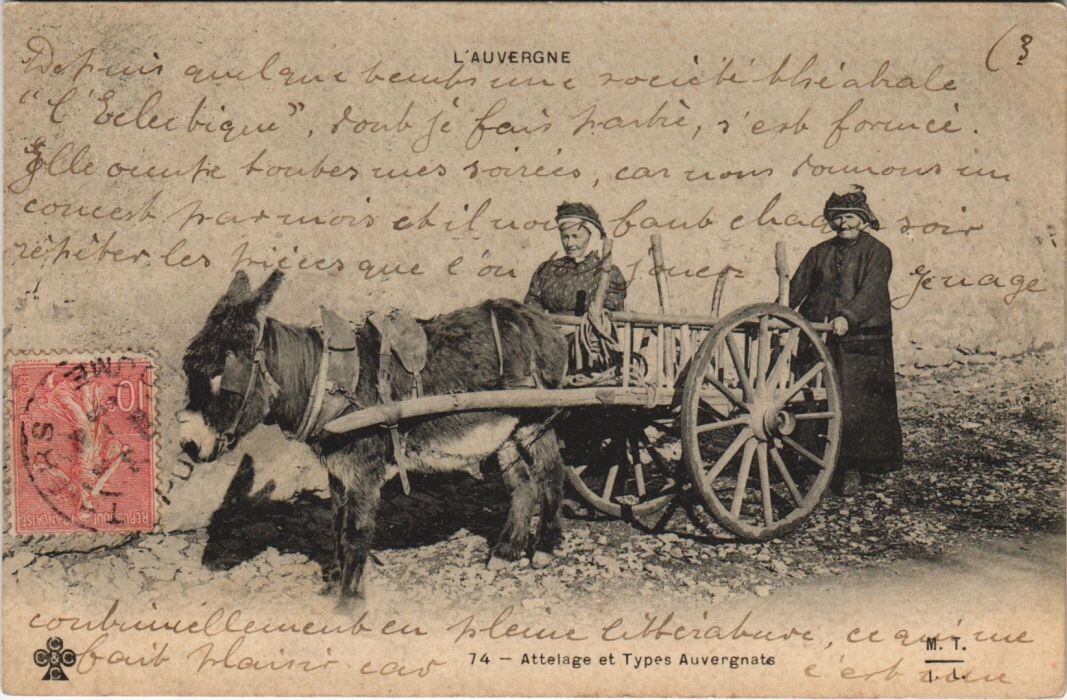 L'AUVERGNE
(3
Depuis quelque temps une société théâtrale
"l'Eclectique", dont je fais partie, s'est formée.
Elle occupe toutes mes soirées, car nous donnons un
concert par mois et il nous faut chaque soir
répéter les pièces que l'on doit jouer. Je nage
10c
POSTES
REPUBLIQUE FRANCAISE
continuellement en pleine littérature, ce qui me
fait plaisir car c'est une
C C C C
74 — Attelage et Types Auvergnats
M. T.
I. L.